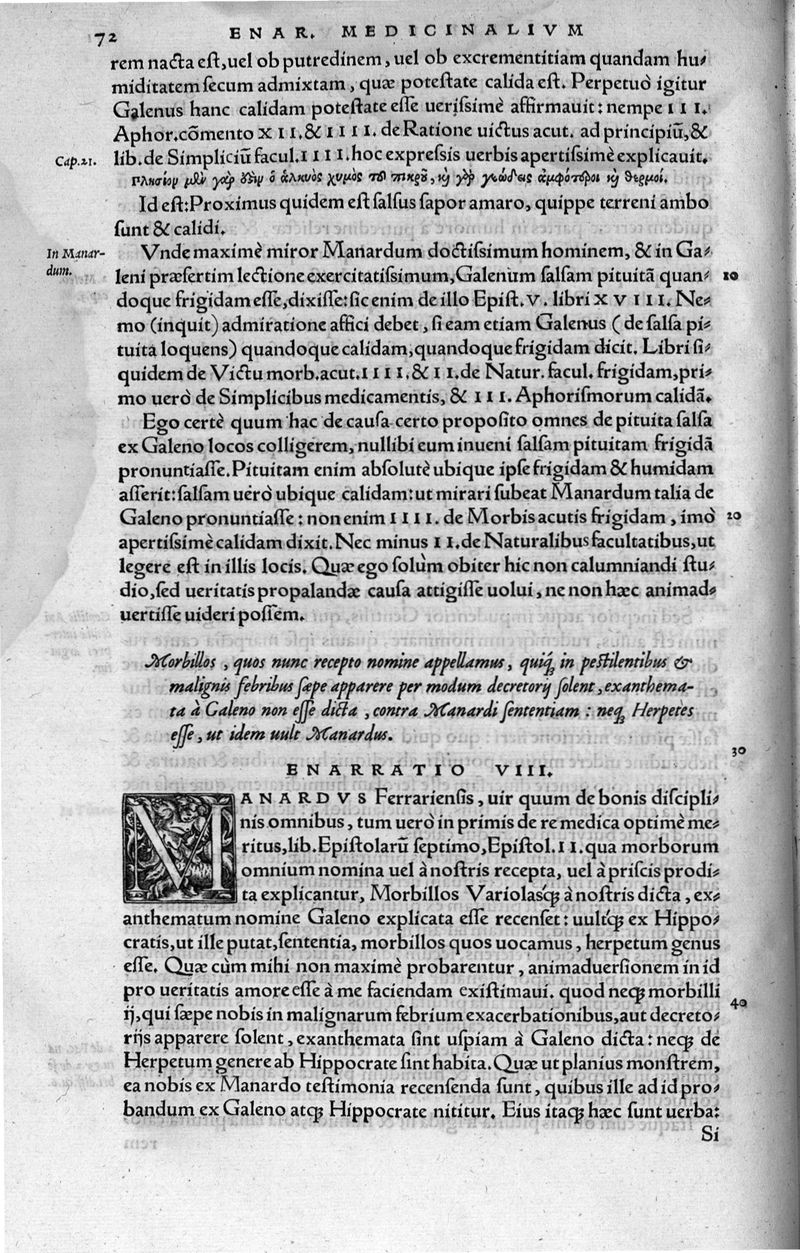 72 ENAR. MEDICINALIVM
rem nacta est, uel ob putredinem, uel ob excrementitiam quandam hu-
miditatem secum admixtam, quæ potestate calida est. Perpetuò igitur
Galenus hanc calidam potestate esse uerissimè affirmauit: nempe III.
Aphor. cõmento XII. & IIII. de Ratione uictus acut. ad principiũ, &
Cap. 21.
lib. de Simpliciũ facul. IIII. hoc expressis uerbis apertissimè explicauit.
πλησίον μὲν γὰρ ὁ ἁλυκὸς χυμὸς τῷ πικρῷ, καὶ γὰρ γεώδεις ἀμφότεροι καὶ θερμοί.
Id est: Proximus quidem est salsus sapor amaro, quippe terreni ambo
sunt & calidi.
In Manar-
dum.
Vnde maximè miror Manardum doctissimum hominem, & in Ga-
leni præsertim lectione exercitatissimum, Galenum salsam pituitã quan- 10
doque frigidam esse, dixisse: sic enim de illo Epist. V. libri XVIII. Ne-
mo (inquit) admiratione affici debet, si eam etiam Galenus (de salsa pi-
tuita loquens) quandoque calidam, quandoque frigidam dicit. Libri si-
quidem de Victu morb. acut. IIII. & II. de Natur. facul. frigidam, pri-
mo uerò de Simplicibus medicamentis, & III. Aphorismorum calidã.
Ego certè quum hac de causa certo proposito omnes de pituita salsa
ex Galeno locos colligerem, nullibi eum inueni salsam pituitam frigidã
pronuntiasse. Pituitam enim absolutè ubique ipse frigidam & humidam
asserit: salsam uerò ubique calidam: ut mirari subeat Manardum talia de
Galeno pronuntiasse: non enim IIII. de Morbis acutis frigidam, imò 20
apertissimè calidam dixit. Nec minus II. de Naturalibus facultatibus, ut
legere est in illis locis. Quæ ego solùm obiter hic non calumniandi stu-
dio, sed ueritatis propalandæ causa attigisse uolui, ne non hæc animad-
uertisse uideri possem.
Morbillos, quos nunc recepto nomine appellamus, quiq́; in pestilentibus &
malignis febribus sæpe apparere per modum decretorij solent, exanthema-
ta à Galeno non esse dicta, contra Manardi sententiam: neq; Herpetes
esse, ut idem uult Manardus.
30
ENARRATIO VIII.
MANARDVS Ferrariensis, uir quum de bonis discipli-
nis omnibus, tum uerò in primis de re medica optimè me-
ritus, lib. Epistolarũ septimo, Epistol. II. qua morborum
omnium nomina uel à nostris recepta, uel à priscis prodi-
ta explicantur, Morbillos Variolasq́; à nostris dicta, ex-
anthematum nomine Galeno explicata esse recenset: uultq́; ex Hippo-
cratis, ut ille putat, sententia, morbillos quos uocamus, herpetum genus
esse. Quæ cùm mihi non maximè probarentur, animaduersionem in id
pro ueritatis amore esse à me faciendam existimaui. quod neq; morbilli
ij, qui sæpe nobis in malignarum febrium exacerbationibus, aut decreto- 40
rijs apparere solent, exanthemata sint uspiam à Galeno dicta: neq; de
Herpetum genere ab Hippocrate sint habita. Quæ ut planius monstrem,
ea nobis ex Manardo testimonia recensenda sunt, quibus ille ad id pro-
bandum ex Galeno atq; Hippocrate nititur. Eius itaq; hæc sunt uerba:
Si